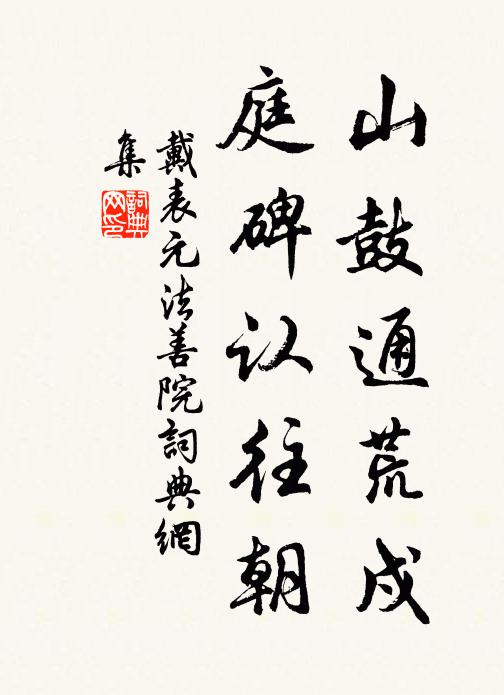 山鼓通荒戍
庭碑认往朝
戴表元法善院詞典網
集
詞典
网印